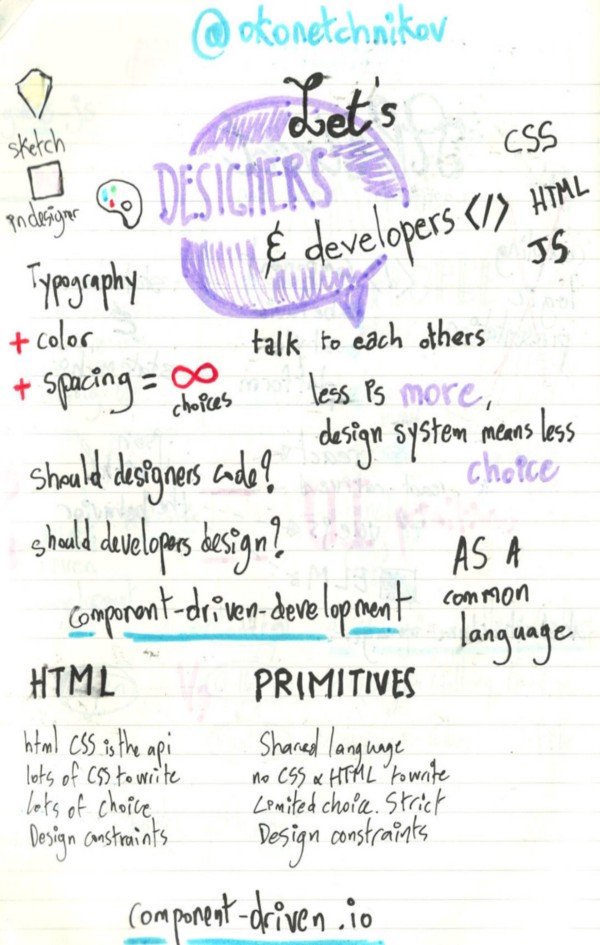 @okonetchnikov
Let's
DESIGNERS
& developers </>
CSS
HTML
JS
sketch
indesigner
Typography
+ color
+ spacing = ∞
choices
talk to each others
less is more,
design system means less
choice
should designers code?
should developers design?
component-driven-development
AS A
common
language
HTML
html CSS is the api
lots of CSS to write
Lots of choice
Design constraints
PRIMITIVES
Shared language
no CSS & HTML to write
Limited choice. Strict
Design constraints
component-driven.io